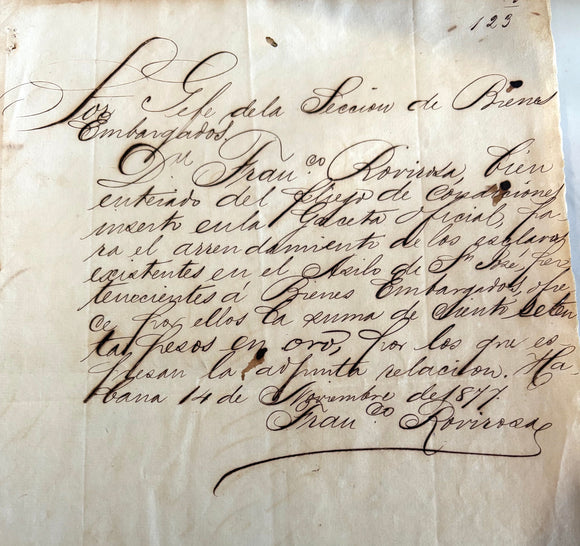 123
Sor Gefe dela Seccion de Bienes
Embargados.
Dn Franco Rovirosa, bien
enterado del pliego de condiciones
inserto enla Gaceta Oficial, pa-
ra el arrendamiento de los esclavos
existentes en el Asilo de Sn José, per
tenecientes á Bienes Embargados, ofre
ce por ellos la suma de Ciento seten
ta pesos en oro, por los que es-
presan la adjunta relacion. Ha-
bana 14 de Noviembre de 1877.
Franco Rovirosa